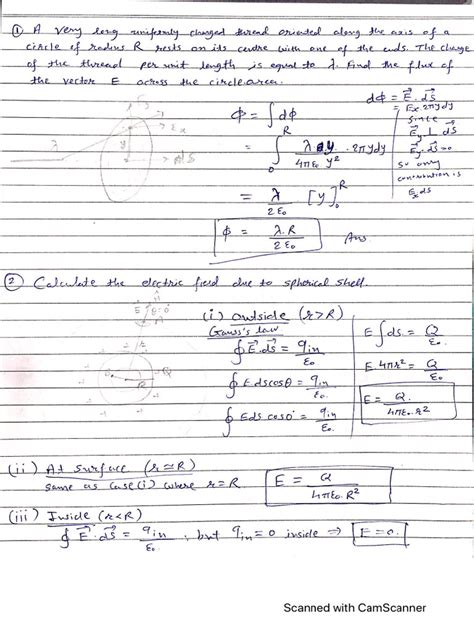 ① A very long uniformly charged thread oriented along the axis of a
circle of radius R rests on its centre with one of the ends. The charge
of the thread per unit length is equal to λ. Find the flux of
the vector E across the circle area.
λ
y
Ex
dS
Φ = ∫dΦ
= ∫₀ᴿ λ / 4πε₀ y² · 2πy dy
= λ / 2ε₀ [y]₀ᴿ
Φ = λ.R / 2ε₀ Ans
dΦ = E⃗.dS⃗
= Ex 2πy dy
Since
Ey ⊥ dS
E⃗y.dS⃗ = 0
So only
contribution is
Ex dS
② Calculate the electric field due to spherical shell.
R
Q
(i) outside (r>R)
Gauss's law
∮ E⃗.dS⃗ = qin / ε₀
∮ E.ds cosθ = qin / ε₀
∮ Eds cos0° = qin / ε₀
E∫ds = Q / ε₀
E.4πr² = Q / ε₀
E = Q / 4πε₀.r²
(ii) At surface (r=R)
same as case(i) where r=R
E = Q / 4πε₀.R²
(iii) Inside (r<R)
∮ E⃗.dS⃗ = qin / ε₀ , but qin = 0 inside ⇒ E=0.
Scanned with CamScanner